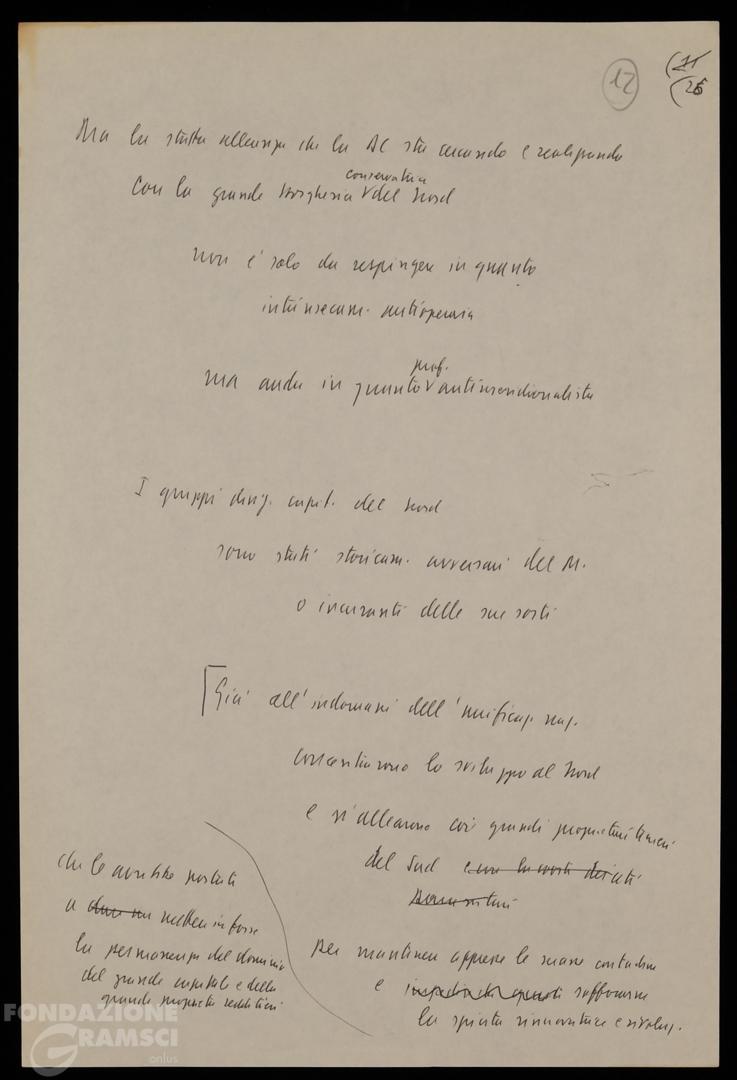 12
(26
Ma la stretta alleanza che la DC sta cercando e realizzando
conservatrice
con la grande borghesia del Nord
non è solo da respingere in quanto
intrinsecam. antioperaia
prof.
ma anche in quanto antimeridionalista
I gruppi dirig. capit. del Nord
sono stati storicam. avversari del M.
o incuranti delle sue sorti
Già all'indomani dell'unificaz. naz.
concentrarono lo sviluppo al Nord
e si allearono coi grandi proprietari terrieri
del Sud
per mantenere oppresse le masse contadine
e soffocarne
la spinta rinnovatrice e rivoluz.
che le avrebbe portate
a mettere in forse
la permanenza del dominio
del grande capitale e della
grande proprietà
FONDAZIONE
GRAMSCI
onlus